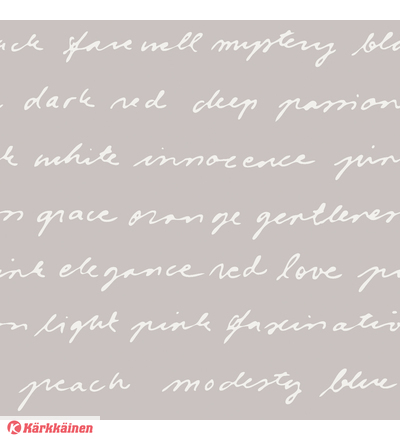 ack farewell mystery bla
dark red deep passion
k white innocence pin
n grace orange gentlenes
ink elegance red love pi
on light pink fascinatio
peach modesty blue
Kärkkäinen